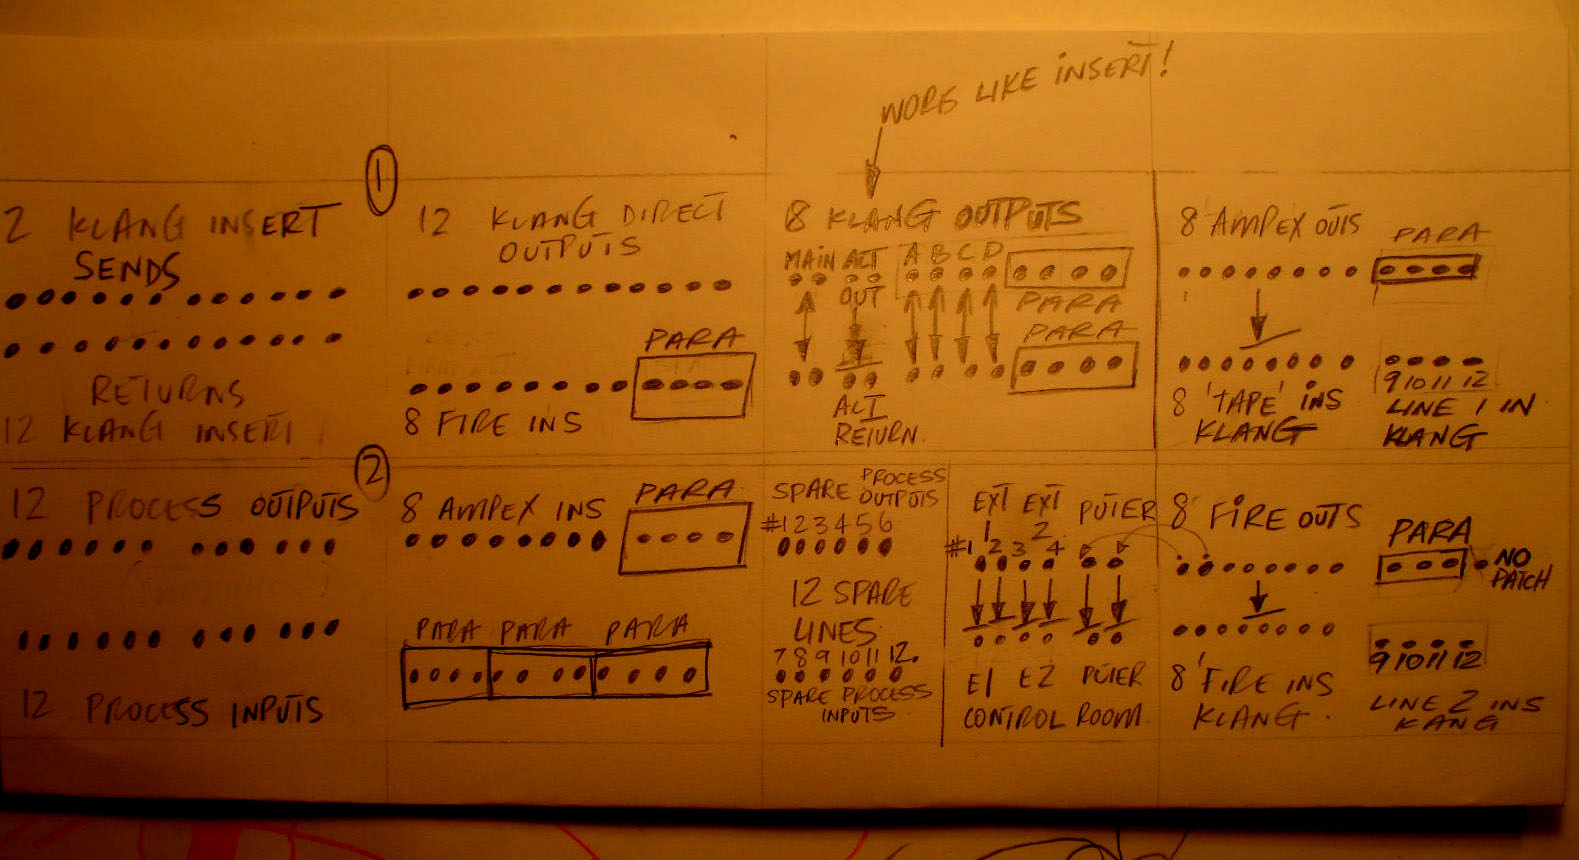 WORK LIKE INSERT!
1
2 KLANG INSERT
SENDS
RETURNS
12 KLANG INSERT
12 KLANG DIRECT
OUTPUTS
PARA
8 FIRE INS
8 KLANG OUTPUTS
MAIN ALT A B C D
OUT
PARA
PARA
ALT
RETURN.
8 AMPEX OUTS
PARA
9 10 11 12
8 'TAPE' INS
KLANG
LINE 1 IN
KLANG
2
12 PROCESS OUTPUTS
12 PROCESS INPUTS
8 AMPEX INS
PARA
PARA PARA PARA
SPARE PROCESS
OUTPUTS
#1 2 3 4 5 6
12 SPARE
LINES.
7 8 9 10 11 12.
SPARE PROCESS
INPUTS
EXT EXT PUTER
1 2
#1 2 3 4
E1 E2 PUTER
CONTROL ROOM.
8 FIRE OUTS
PARA
NO
PATCH
9 10 11 12
8 'FIRE INS
KLANG.
LINE 2 INS
KANG